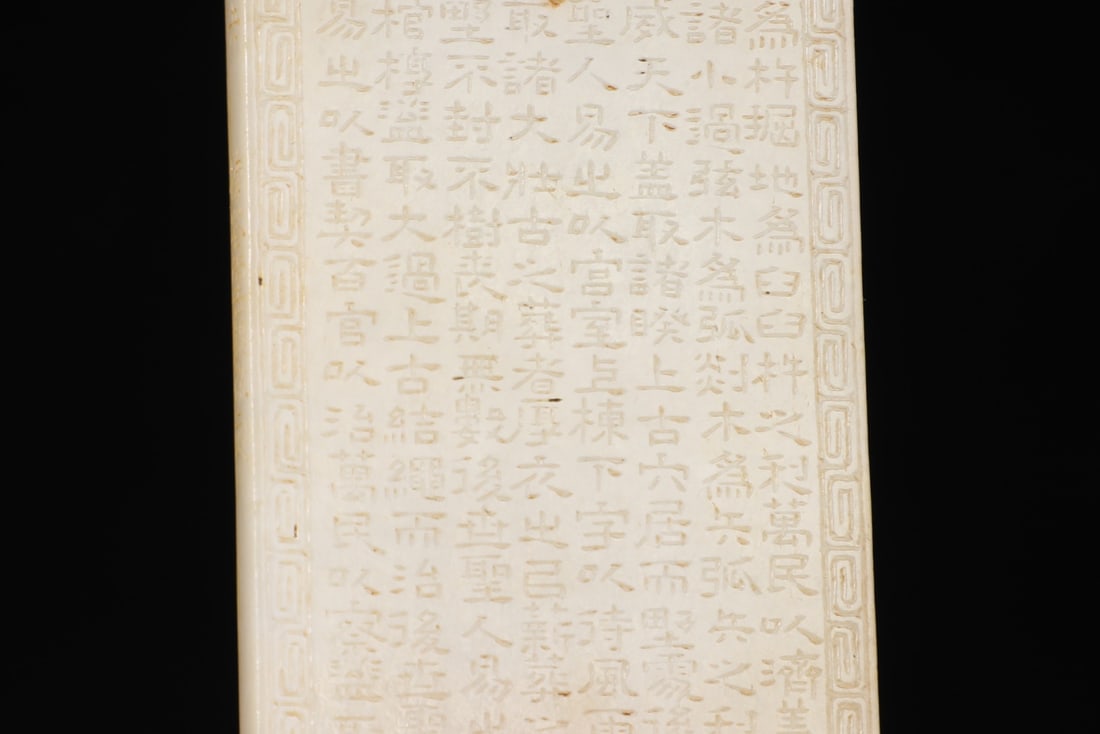 為杵掘地為臼臼杵之利萬民以濟蓋
諸小過弦木為弧剡木為兵弧兵之利
威天下蓋取諸睽上古穴居而野處後
聖人易之以宮室上棟下宇以待風雨
取諸大壯古之葬者厚衣之㠯薪葬之
野不封不樹喪期無數後世聖人易之
棺槨蓋取大過上古結繩而治後世聖
易之以書契百官以治萬民以察蓋取